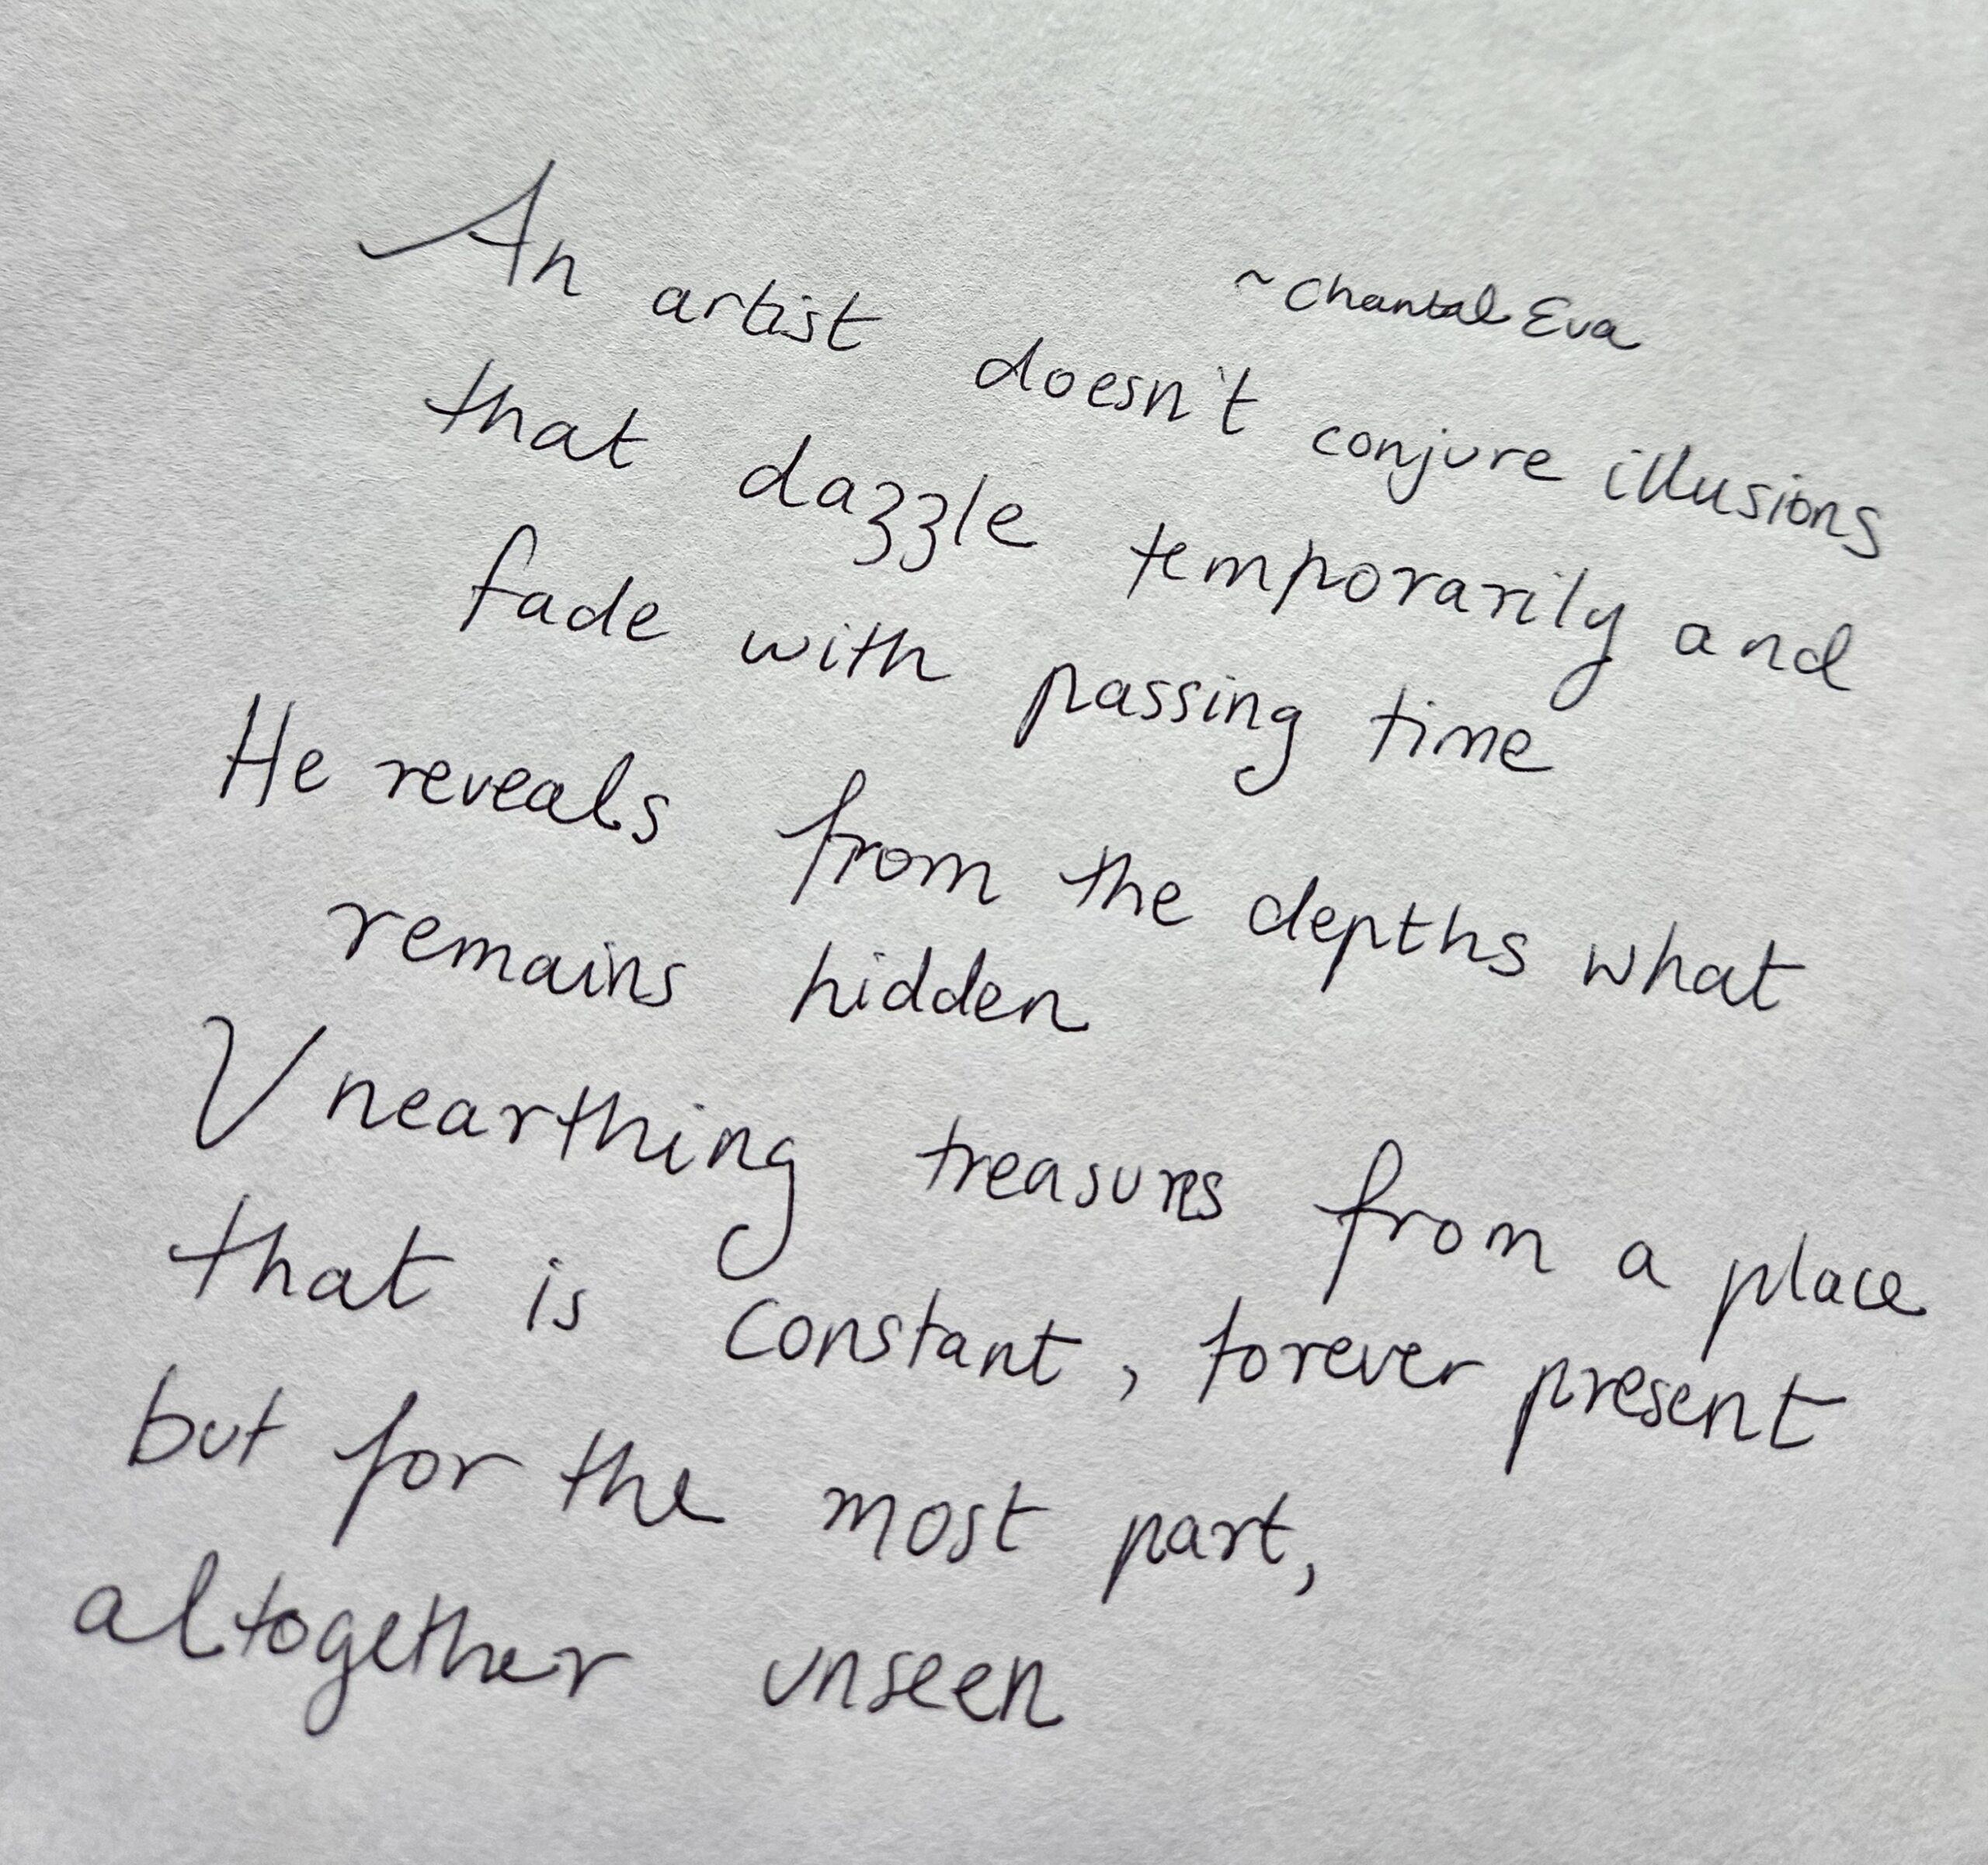 ~Chantal Eva
An artist doesn't conjure illusions
that dazzle temporarily and
fade with passing time
He reveals from the depths what
remains hidden
Unearthing treasures from a place
that is constant, forever present
but for the most part,
altogether unseen